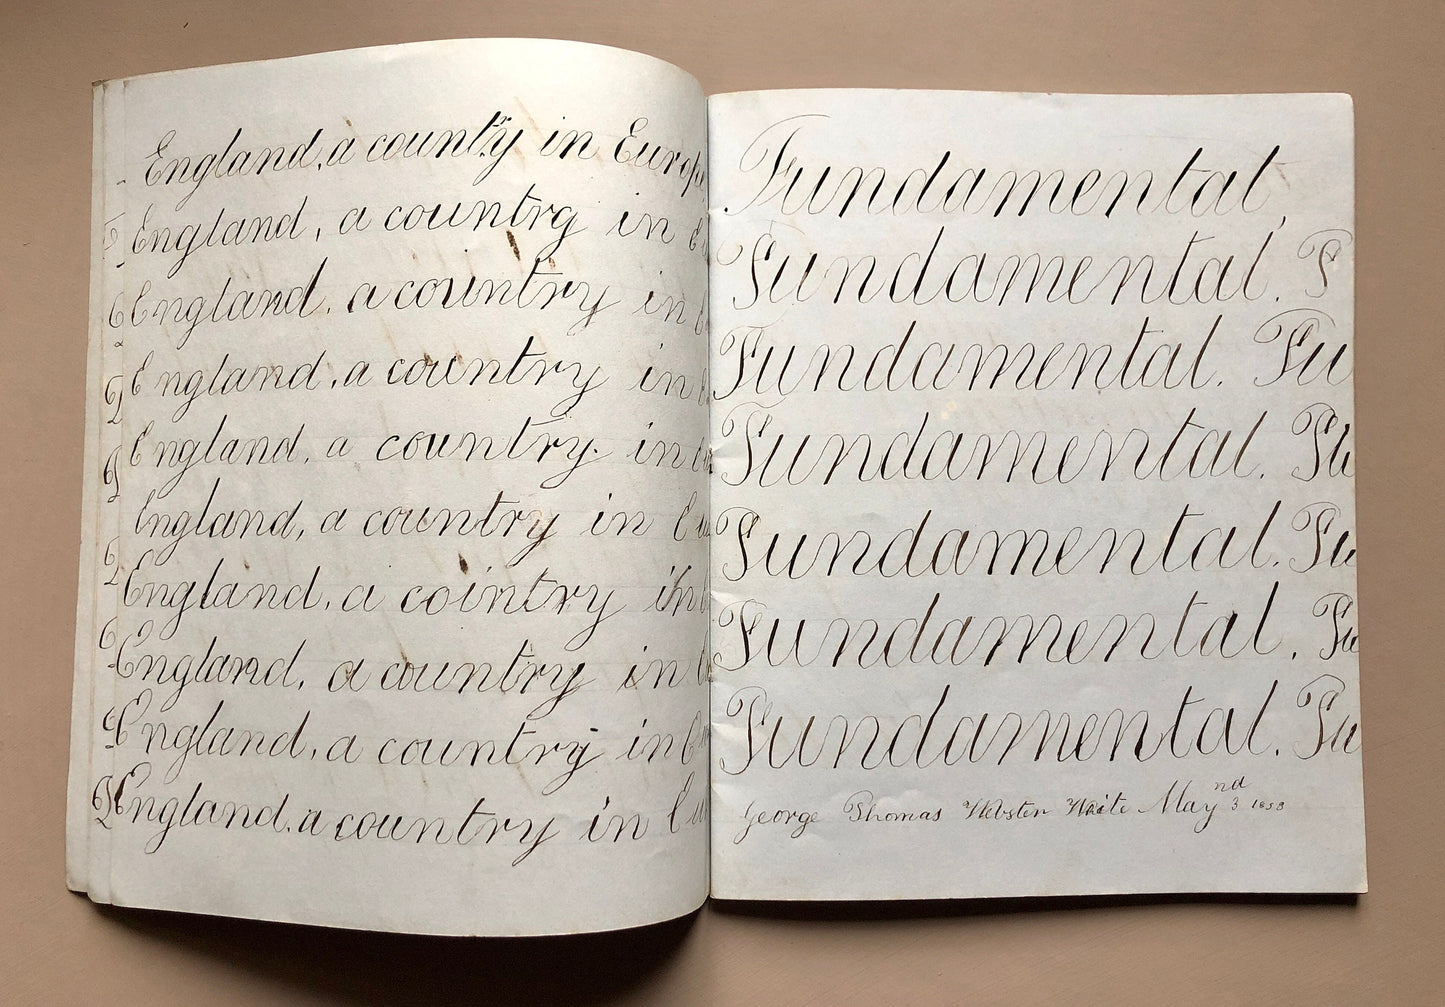 England, a country in Europe
England, a country in E
England, a country in E
England, a country in E
England, a country. in Eu
England, a country in Eu
England, a cointry in E
England, a country in E
England, a country in Eu
England. a country in Eu
Fundamental,
Fundamental. F
Fundamental. Fu
Fundamental. Fu
Fundamental. Fu
Fundamental. Fu
Fundamental. Fu
George Thomas Webster Waite May 3nd 1858